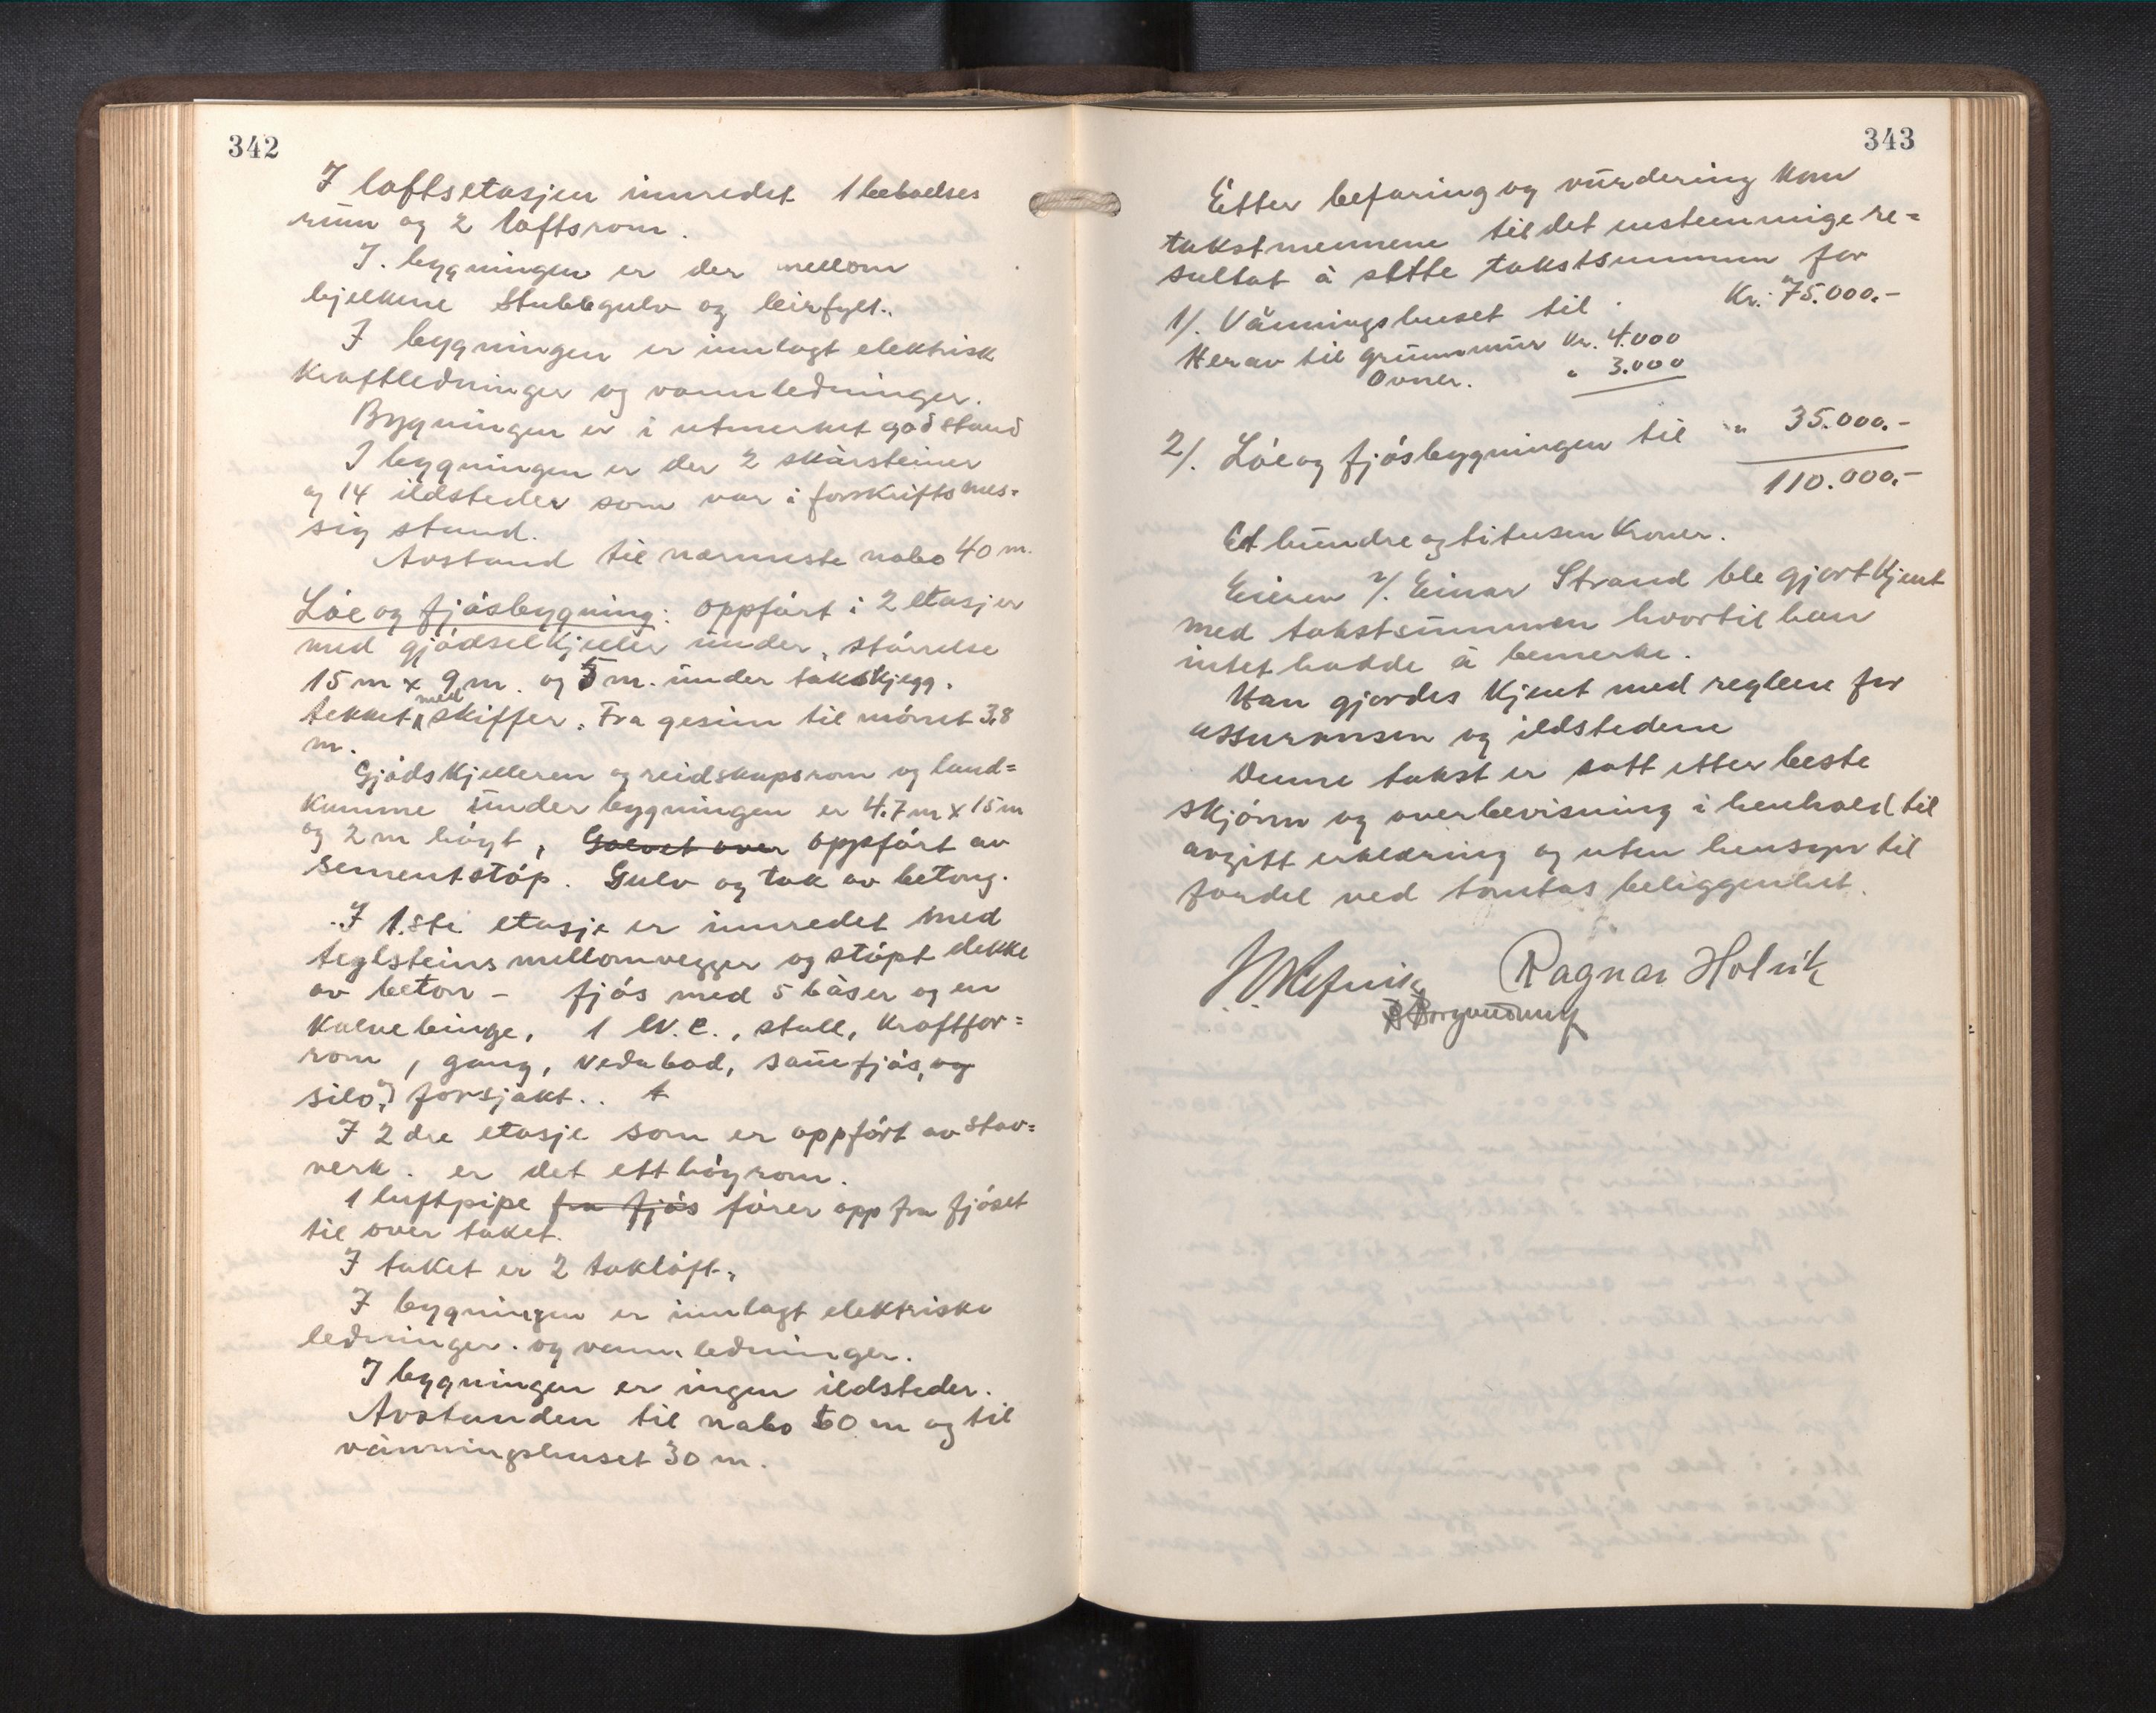 342
I loftsetasjen innredet 1 beboelses
rum og 2 loftsrom.
I. bygningen er der mellom
bjelkene Stubbgulv og leirfylt.
I bygningen er innlagt elektrisk
kraftledninger og vannledninger.
Bygningen er i utmerket god stand
I bygningen er der 2 skårsteiner
og 14 ildsteder som var i forskriftsmes=
sig stand.
Avstand til nærmeste nabo 40 m.
Lóe og fjósbygning: oppfórt i 2 etasjer
med gjódselkjeller under, stórrelse
15 m x 9 m. og 5 m. under takskjegg.
tekket med skiffer. Fra gesim til mónet 3.8
m.
Gjódskjelleren og reidskapsrom og land=
kumme under bygningen er 4.7 m x 15 m
og 2 m hógt, Golvet over oppfórt av
sementstóp. Gulv og tak av betong.
I 1.ste etasje er innredet med
teglsteins mellomvegger og stópt dekke
av beton - fjós med 5 båser og en
kalvebinge, 1 W.C., stall, kraftfor=
rom, gang, vedabod, sauefjós, og
silo og forsjakt.. t
I 2 dre etasje som er oppfórt av stav=
verk. er det ett hóyrom.
1 luftpipe fra fjós fórer opp fra fjóset
til over taket.
I taket er 2 taklóft.
I bygningen er innlagt elektriske
ledninger. og vannledninger.
I bygningen er ingen ildsteder.
Avstanden til nabo 60 m og til
våningshuset 30 m.
343
Etter befaring og vurdering kom
takstmennene til det enstemmige re=
sultat å sette takstsummen for
1/. Våningshuset til Kr. 75.000.-
Herav til grunnmur Kr. 4.000
Ovner. " 3.000
2/. Lóe og fjósbygningen til " 35.000.-
110.000.-
Et hundre og titusen Kroner.
Eieren Einar Strand ble gjort kjent
med takstsummen hvortil han
intet hadde å bemerke.
Han gjordes kjent med reglene for
assuransen og ildstedene
Denne takst er satt etter beste
skjónn og overbevisning i henhold til
avgitt erklæring og uten hensyn til
fordel ved tomtas beliggenhet.
Ragnar Holvik